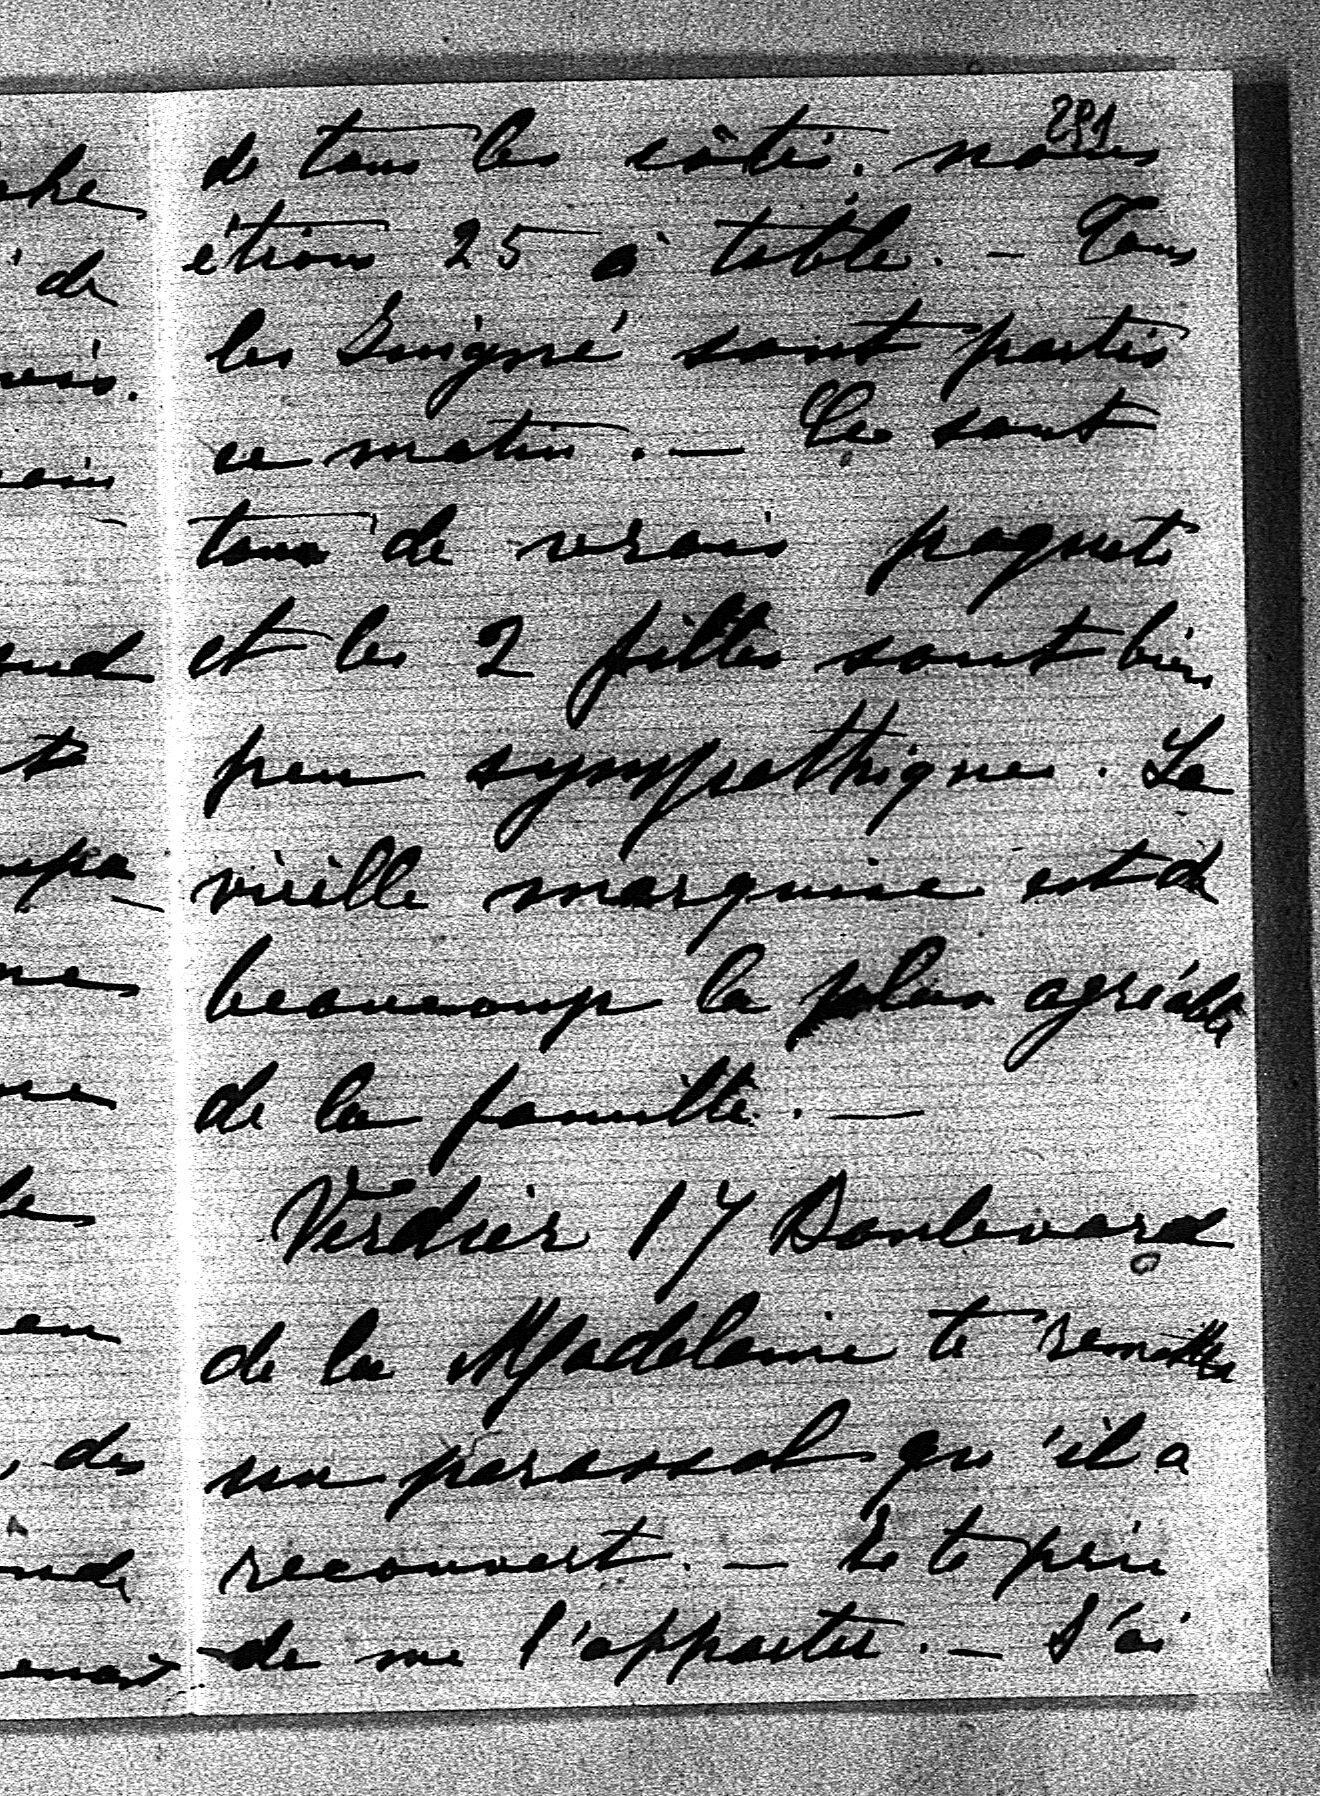 291
de tous les côtés. nous
étions 25 à table. — Tous
les Suigné sont partis
ce matin. — Ce sont
tous de vrais paquets
et les 2 filles sont bien
peu sympathiques. La
vieille marquise est de
beaucoup la plus agréable
de la famille. —
Verdier 17 Boulevard
de la Madeleine te remettra
un parasol qu'il a
recouvert. — Je te prie
de me l'apporter. — J'ai